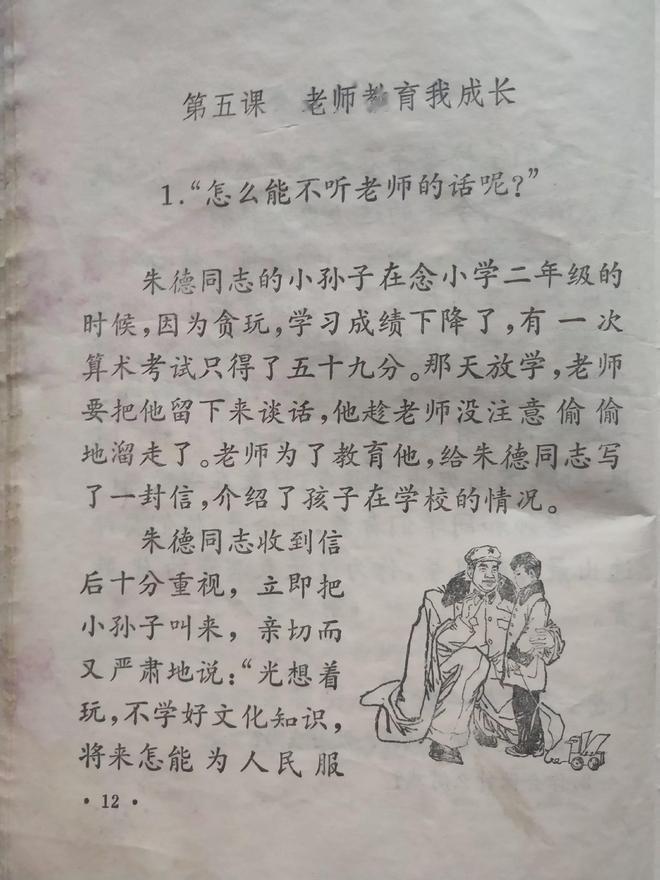 第五课 老师教育我成长
1.“怎么能不听老师的话呢?”
朱德同志的小孙子在念小学二年级的
时候,因为贪玩,学习成绩下降了,有一次
算术考试只得了五十九分。那天放学,老师
要把他留下来谈话,他趁老师没注意偷偷
地溜走了。老师为了教育他,给朱德同志写
了一封信,介绍了孩子在学校的情况。
朱德同志收到信
后十分重视,立即把
小孙子叫来,亲切而
又严肃地说:“光想着
玩,不学好文化知识,
将来怎能为人民服
·12·